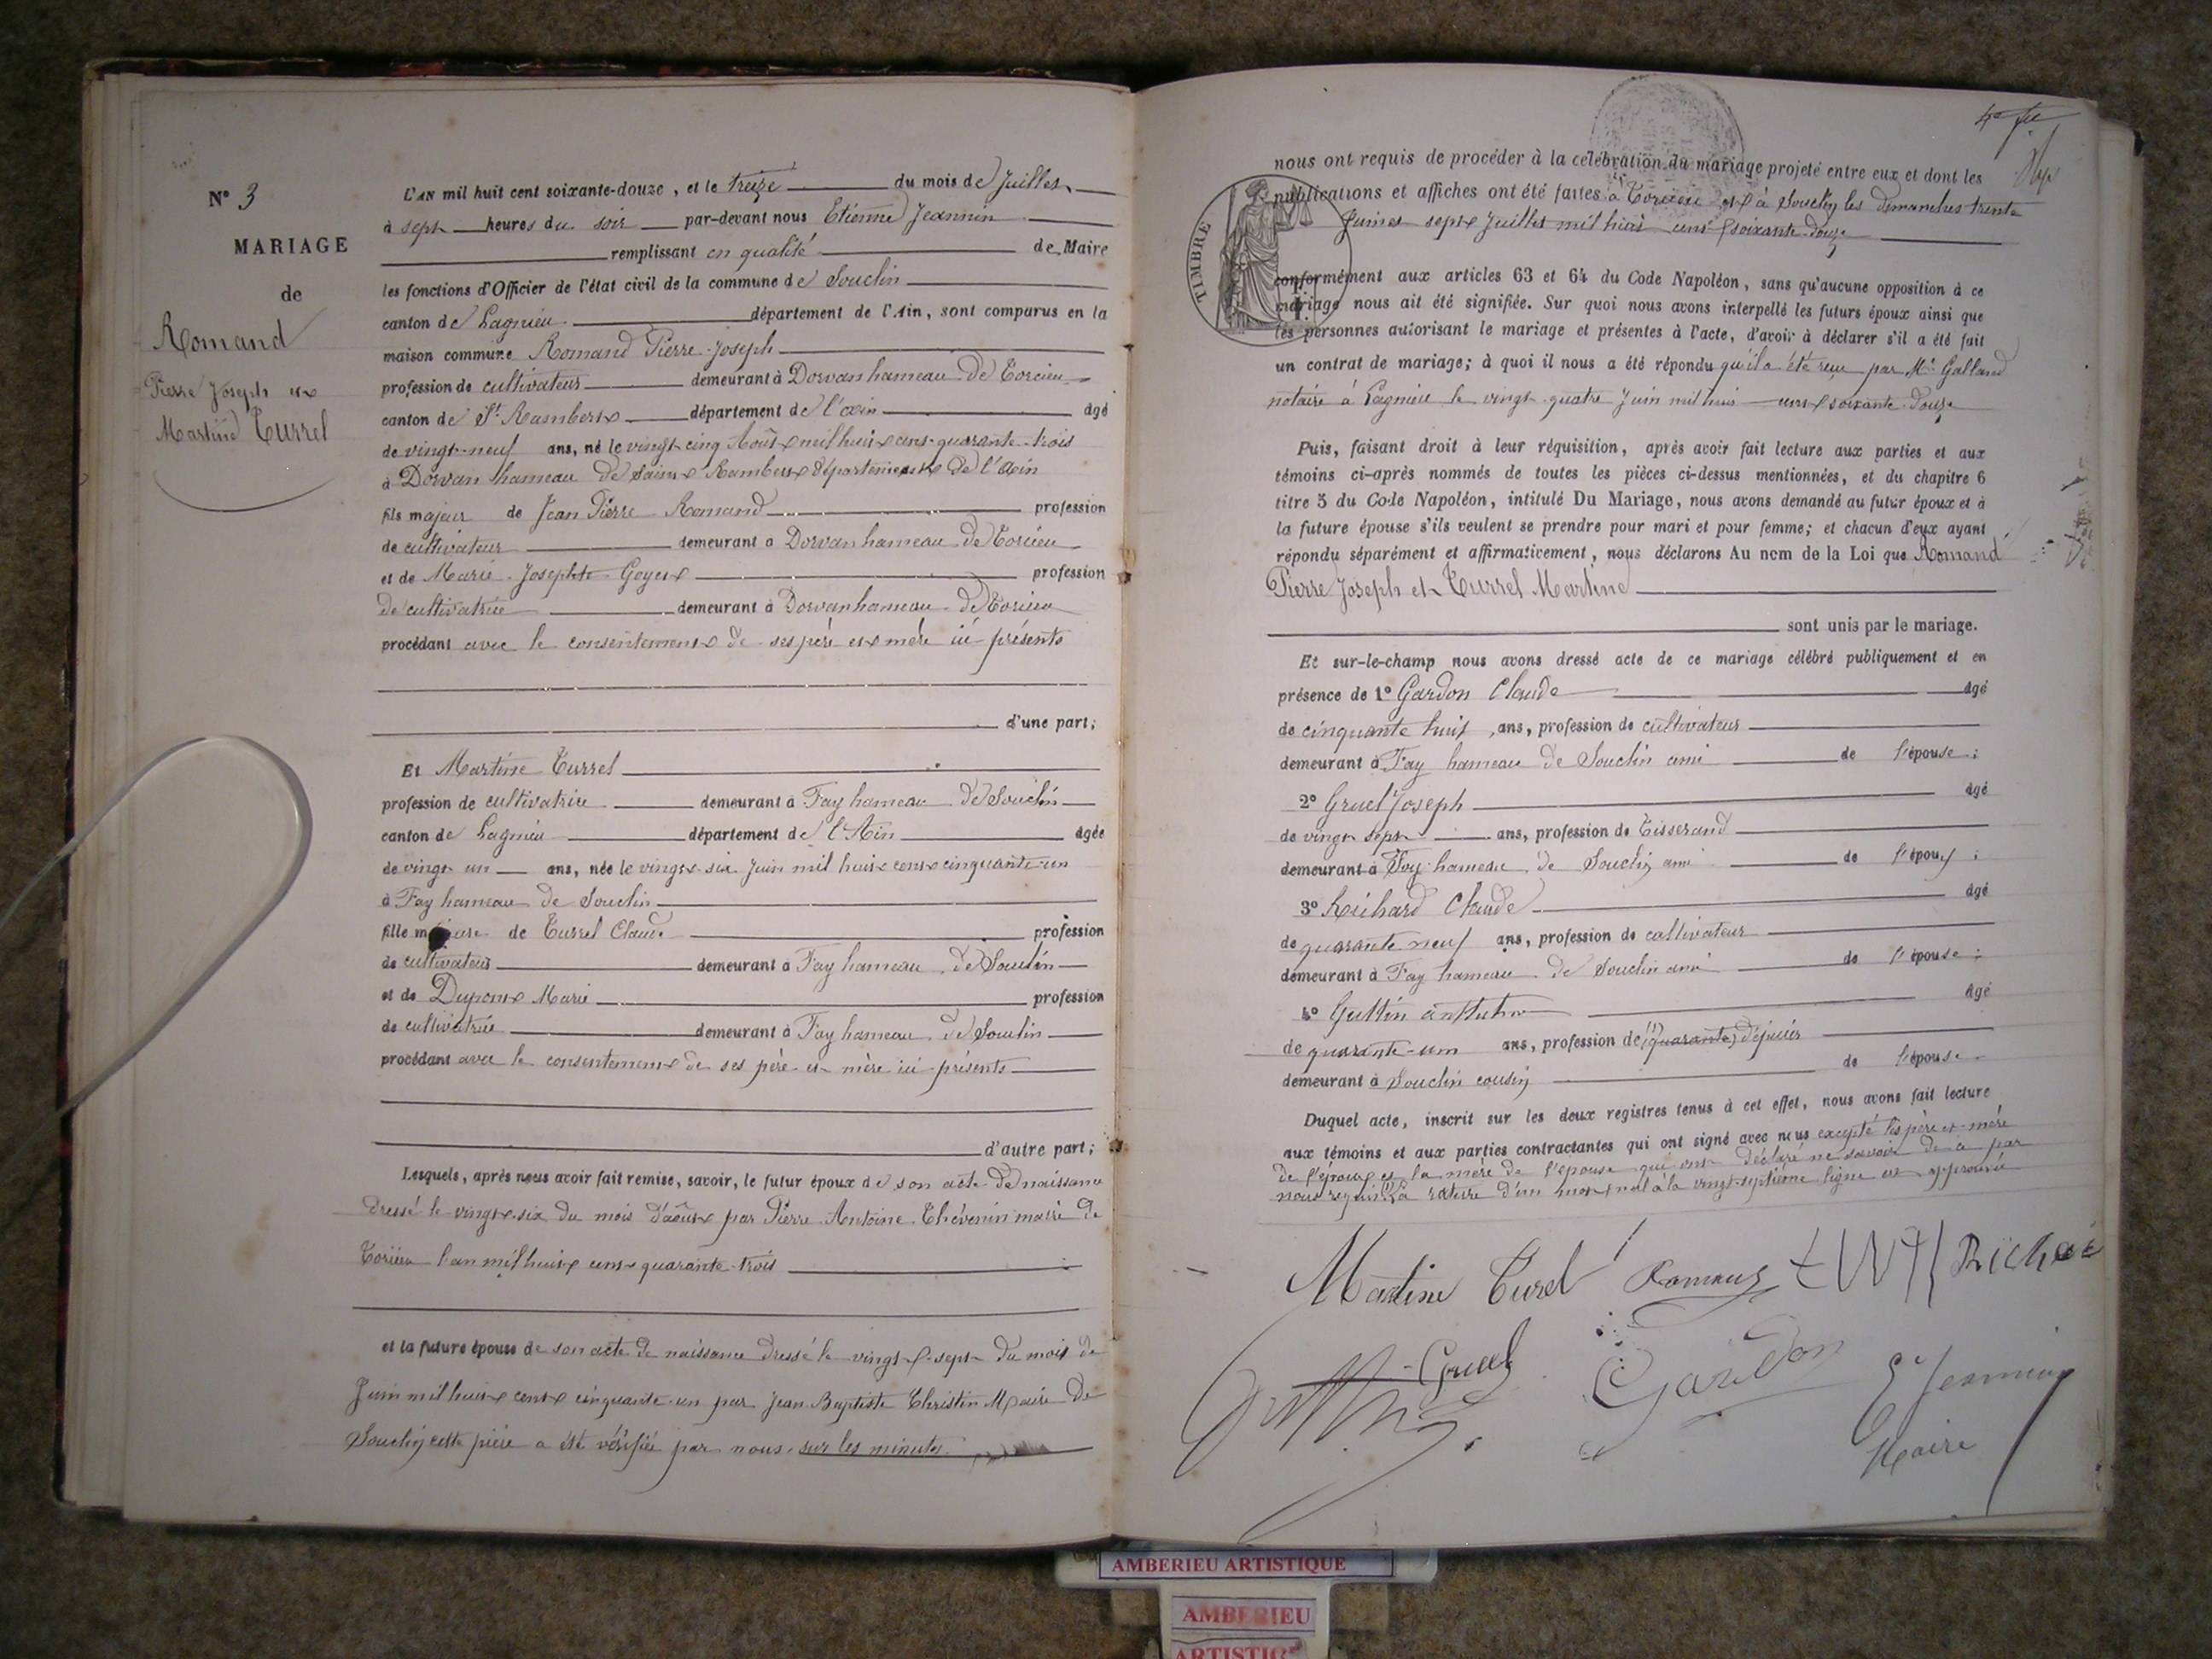 N° 3
MARIAGE
de
Romand
Pierre Joseph et
Martine Turrel
L'AN mil huit cent soixante-douze, et le treize du mois de Juillet
à sept heures du soir par-devant nous Etienne Jeannin
remplissant en qualité de Maire
les fonctions d'Officier de l'état civil de la commune de Souclin
canton de Lagnieu département de l'Ain, sont comparus en la
maison commune Romand Pierre Joseph
profession de cultivateur demeurant à Dorvan hameau de Torcieu
canton de St Rambert département de l'ain âgé
de vingt-neuf ans, né le vingt cinq Août mil huit cent quarante-trois
à Dorvan hameau de Saint Rambert département de l'ain
fils majeur de Jean Pierre Romand profession
de cultivateur demeurant à Dorvan hameau de Torcieu
et de Marie Josephte Goyet profession
de cultivatrice demeurant à Dorvan hameau de Torcieu
procédant avec le consentement de ses père et mère ici présents
d'une part;
Et Martine Turrel
profession de cultivatrice demeurant à Fay hameau de Souclin
canton de Lagnieu département de l'Ain âgée
de vingt un ans, née le vingt six Juin mil huit cent cinquante-un
à Fay hameau de Souclin
fille majeure de Turrel Claude profession
de cultivateur demeurant à Fay hameau de Souclin
et de Dupont Marie profession
de cultivatrice demeurant à Fay hameau de Souclin
procédant avec le consentement de ses père et mère ici présents
d'autre part;
Lesquels, après nous avoir fait remise, savoir, le futur époux de son acte de naissance
dressé le vingt six du mois d'août par Pierre Antoine Thévenin maire de
Torcieu l'an mil huit cent quarante-trois
et la future épouse de son acte de naissance dressé le vingt-sept du mois de
Juin mil huit cent cinquante-un par Jean Baptiste Christin Maire de
Souclin cette pièce a été vérifiée par nous sur les minutes
nous ont requis de procéder à la célébration du mariage projeté entre eux et dont les
publications et affiches ont été faites à Torcieu et à Souclin les dimanches trente
Juin et sept Juillet mil huit cent soixante-douze
TIMBRE
conformément aux articles 63 et 64 du Code Napoléon, sans qu'aucune opposition à ce
mariage nous ait été signifiée. Sur quoi nous avons interpellé les futurs époux ainsi que
les personnes autorisant le mariage et présentes à l'acte, d'avoir à déclarer s'il a été fait
un contrat de mariage; à quoi il nous a été répondu qu'il a été reçu par Me Galland
notaire à Lagnieu le vingt-quatre Juin mil huit cent soixante-douze
Puis, faisant droit à leur réquisition, après avoir fait lecture aux parties et aux
témoins ci-après nommés de toutes les pièces ci-dessus mentionnées, et du chapitre 6
titre 5 du Code Napoléon, intitulé Du Mariage, nous avons demandé au futur époux et à
la future épouse s'ils veulent se prendre pour mari et pour femme; et chacun d'eux ayant
répondu séparément et affirmativement, nous déclarons Au nom de la Loi que Romand
Pierre Joseph et Turrel Martine
sont unis par le mariage.
Et sur-le-champ nous avons dressé acte de ce mariage célébré publiquement et en
présence de 1° Gardon Claude âgé
de cinquante huit ans, profession de cultivateur
demeurant à Fay hameau de Souclin ami de l'épouse;
2° Gruel Joseph âgé
de vingt sept ans, profession de Tisserand
demeurant à Fay hameau de Souclin ami de l'époux;
3° Richard Claude âgé
de quarante neuf ans, profession de cultivateur
demeurant à Fay hameau de Souclin ami de l'épouse;
4° Guttin âgé
de quarante-un ans, profession de (1) quarante
demeurant à Souclin cousin de l'épouse
Duquel acte, inscrit sur les deux registres tenus à cet effet, nous avons fait lecture
aux témoins et aux parties contractantes qui ont signé avec nous excepté les père et mère
de l'époux et la mère de l'épouse qui ont déclaré ne savoir de ce par
nous requis (1) la rature d'un mot nul à la vingt-septième ligne est approuvée
Martine Turel Romand Richa
Gruel Gardon E Jeannin
Guttin Maire
AMBERIEU ARTISTIQUE
AMBERIEU
ARTISTIQ